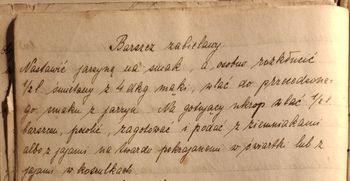 Barszcz zabielany
Nastawić jarzynę na smak, a osobno rozkłócić
1/2 l. śmietany z 4 dkg mąki, wlać do przecedzone-
go smaku z jarzyn. Na gotujący ukrop wlać 1/2 l.
barszczu, posolić, zagotować i podać z ziemniakami
albo z jajami na twardo pokrajanemi w ćwiartki lub z
jajami w koszulkach.